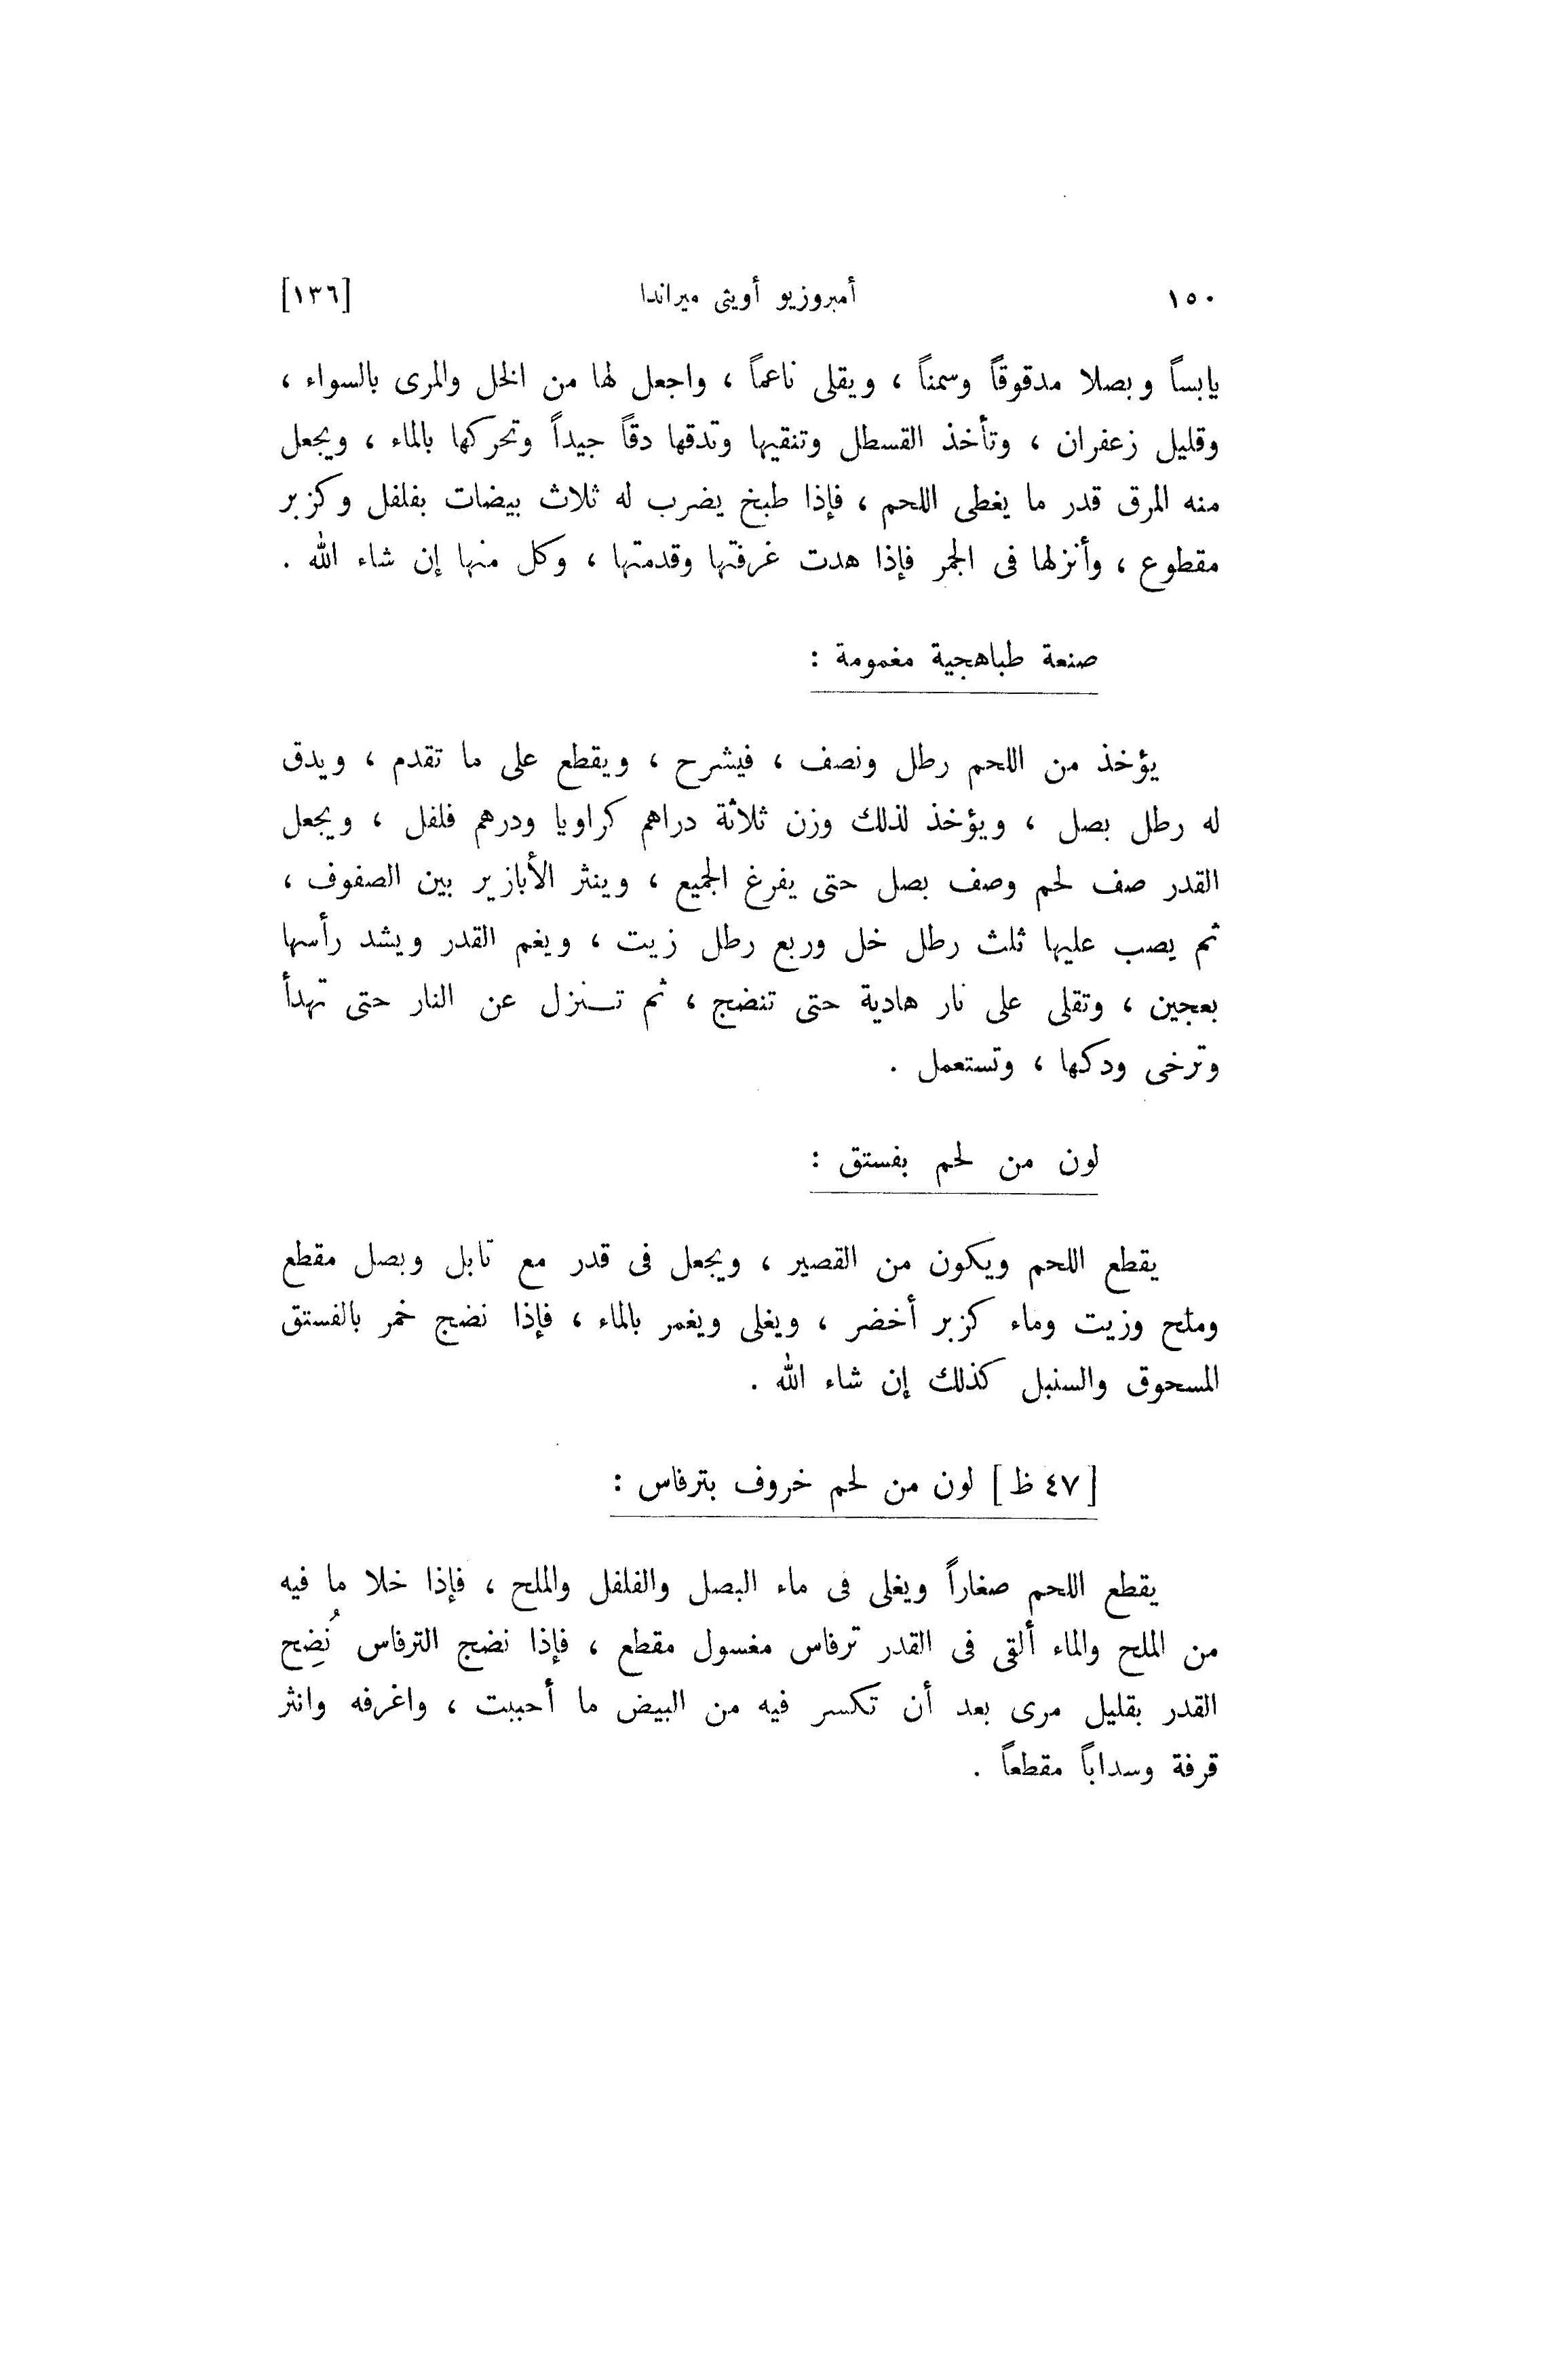 ١٥٠ أمبروزيو أويثى ميراندا [١٣٦]
يابساً وبصلا مدقوقاً وسمناً ، ويقلى ناعماً ، واجعل لها من الخل والمرى بالسواء ،
وقليل زعفران ، وتأخذ القسطل وتنقيها وتدقها دقاً جيداً وتحركها بالماء ، ويجعل
منه المرق قدر ما يغطى اللحم ، فإذا طبخ يضرب له ثلاث بيضات بفلفل وكزبر
مقطوع ، وأنزلها فى الجمر فإذا هدت غرفتها وقدمتها ، وكل منها إن شاء الله .
صنعة طباهجية مغمومة :
يؤخذ من اللحم رطل ونصف ، فيشرح ، ويقطع على ما تقدم ، ويدق
له رطل بصل ، ويؤخذ لذلك وزن ثلاثة دراهم كراويا ودرهم فلفل ، ويجعل
القدر صف لحم وصف بصل حتى يفرغ الجميع ، وينثر الأبازير بين الصفوف ،
ثم يصب عليها ثلث رطل خل وربع رطل زيت ، ويغم القدر ويشد رأسها
بعجين ، وتقلى على نار هادية حتى تنضج ، ثم تــنزل عن النار حتى تهدأ
وترخى ودكها ، وتستعمل .
لون من لحم بفستق :
يقطع اللحم ويكون من القصير ، ويجعل فى قدر مع تابل وبصل مقطع
وملح وزيت وماء كزبر أخضر ، ويغلى ويغمر بالماء ، فإذا نضج خمر بالفستق
المسحوق والسنبل كذلك إن شاء الله .
[ ٤٧ ظ ] لون من لحم خروف بترفاس :
يقطع اللحم صغاراً ويغلى فى ماء البصل والفلفل والملح ، فإذا خلا ما فيه
من الملح والماء ألقى فى القدر ترفاس مغسول مقطع ، فإذا نضج الترفاس نُضِح
القدر بقليل مرى بعد أن تكسر فيه من البيض ما أحببت ، واغرفه وانثر
قرفة وسداباً مقطعاً .